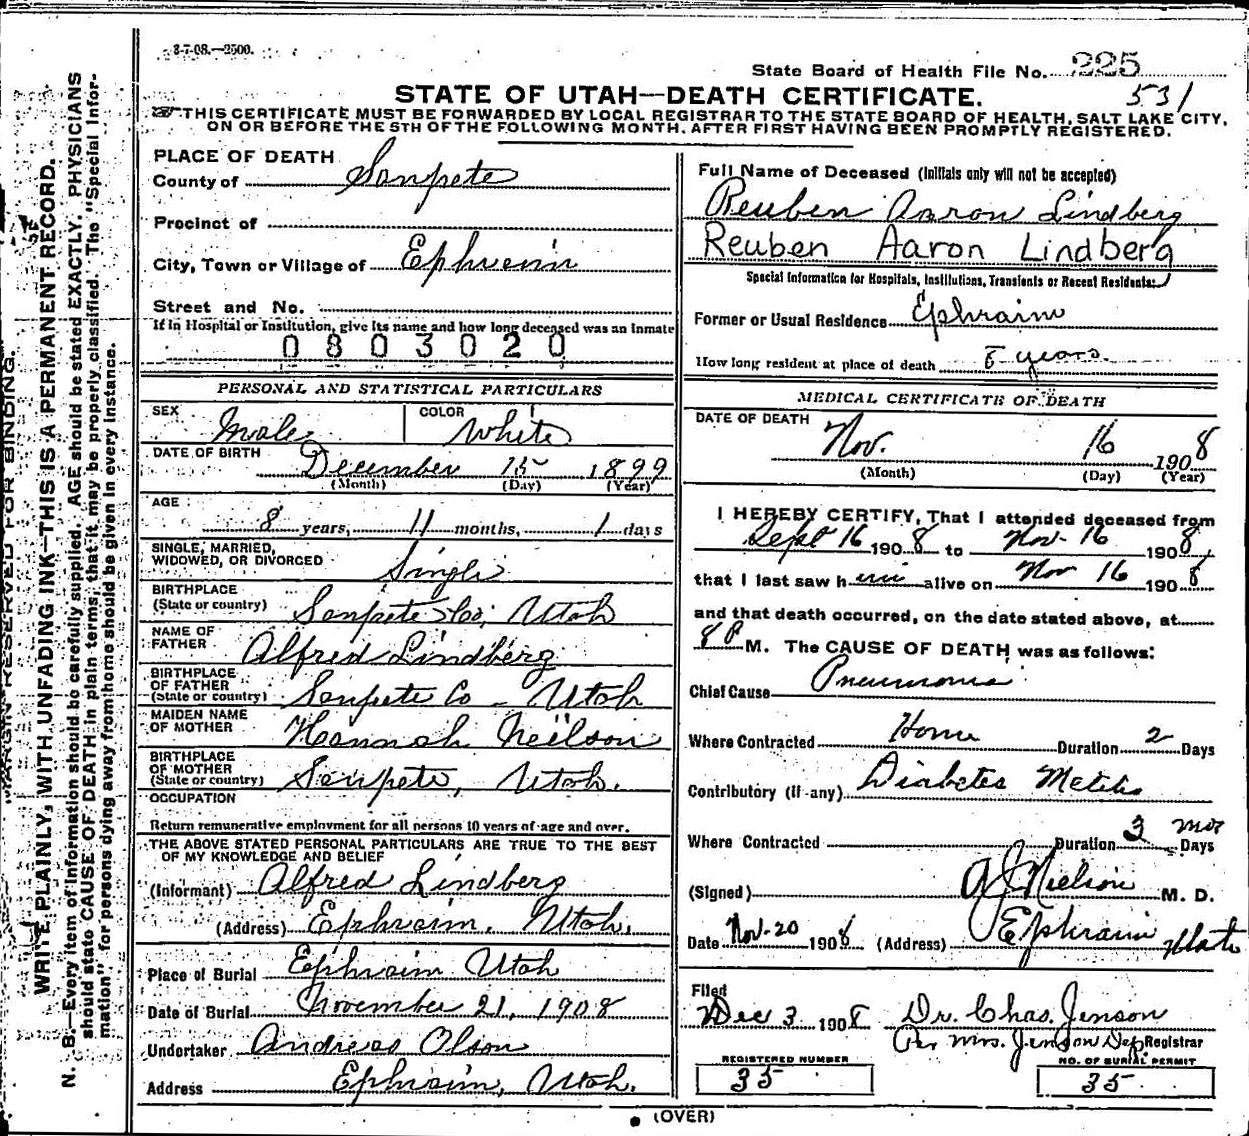 3-7-08.—2500.
State Board of Health File No. 225
STATE OF UTAH—DEATH CERTIFICATE.
531
THIS CERTIFICATE MUST BE FORWARDED BY LOCAL REGISTRAR TO THE STATE BOARD OF HEALTH, SALT LAKE CITY,
ON OR BEFORE THE 5TH OF THE FOLLOWING MONTH, AFTER FIRST HAVING BEEN PROMPTLY REGISTERED.
MARGIN RESERVED FOR BINDING.
WRITE PLAINLY, WITH UNFADING INK—THIS IS A PERMANENT RECORD.
N. B.—Every item of information should be carefully supplied. AGE should be stated EXACTLY. PHYSICIANS
should state CAUSE OF DEATH in plain terms, that it may be properly classified. The "Special Infor-
mation" for persons dying away from home should be given in every instance.
PLACE OF DEATH
County of Sanpete
Precinct of
City, Town or Village of Ephraim
Street and No.
If in Hospital or Institution, give its name and how long deceased was an inmate
0803020
PERSONAL AND STATISTICAL PARTICULARS
SEX Male
COLOR White
DATE OF BIRTH December 15 1899
(Month) (Day) (Year)
AGE 8 years, 11 months, 1 days
SINGLE, MARRIED,
WIDOWED, OR DIVORCED Single
BIRTHPLACE
(State or country) Sanpete Co; Utah
NAME OF
FATHER Alfred Lindberg
BIRTHPLACE
OF FATHER
(State or country) Sanpete Co - Utah
MAIDEN NAME
OF MOTHER Hannah Neilson
BIRTHPLACE
OF MOTHER
(State or country) Sanpete, Utah.
OCCUPATION
Return remunerative employment for all persons 10 years of age and over.
THE ABOVE STATED PERSONAL PARTICULARS ARE TRUE TO THE BEST
OF MY KNOWLEDGE AND BELIEF
(Informant) Alfred Lindberg
(Address) Ephraim, Utah.
Place of Burial Ephraim Utah
Date of Burial November 21, 1908
Undertaker Andreas Olson
Address Ephraim, Utah.
Full Name of Deceased (Initials only will not be accepted)
Reuben Aaron Lindberg
Reuben Aaron Lindberg
Special Information for Hospitals, Institutions, Transients or Recent Residents:
Former or Usual Residence Ephraim
How long resident at place of death 8 years.
MEDICAL CERTIFICATE OF DEATH
DATE OF DEATH Nov. 16 1908
(Month) (Day) (Year)
I HEREBY CERTIFY, That I attended deceased from
Sept 16 1908 to Nov. 16 1908,
that I last saw him alive on Nov 16 1908
and that death occurred, on the date stated above, at
8 P M. The CAUSE OF DEATH was as follows:
Chief Cause Pneumonia
Where Contracted Home Duration 2 Days
Contributory (if any) Diabetes
Where Contracted Duration 3 mos Days
(Signed) Nielson M. D.
Date Nov-20 1908 (Address) Ephraim Utah
Filed
Dec 3 1908 Dr. Chas. Jenson
Per Mrs. Jenson Dep Registrar
REGISTERED NUMBER
35
NO. OF BURIAL PERMIT
35
(OVER)